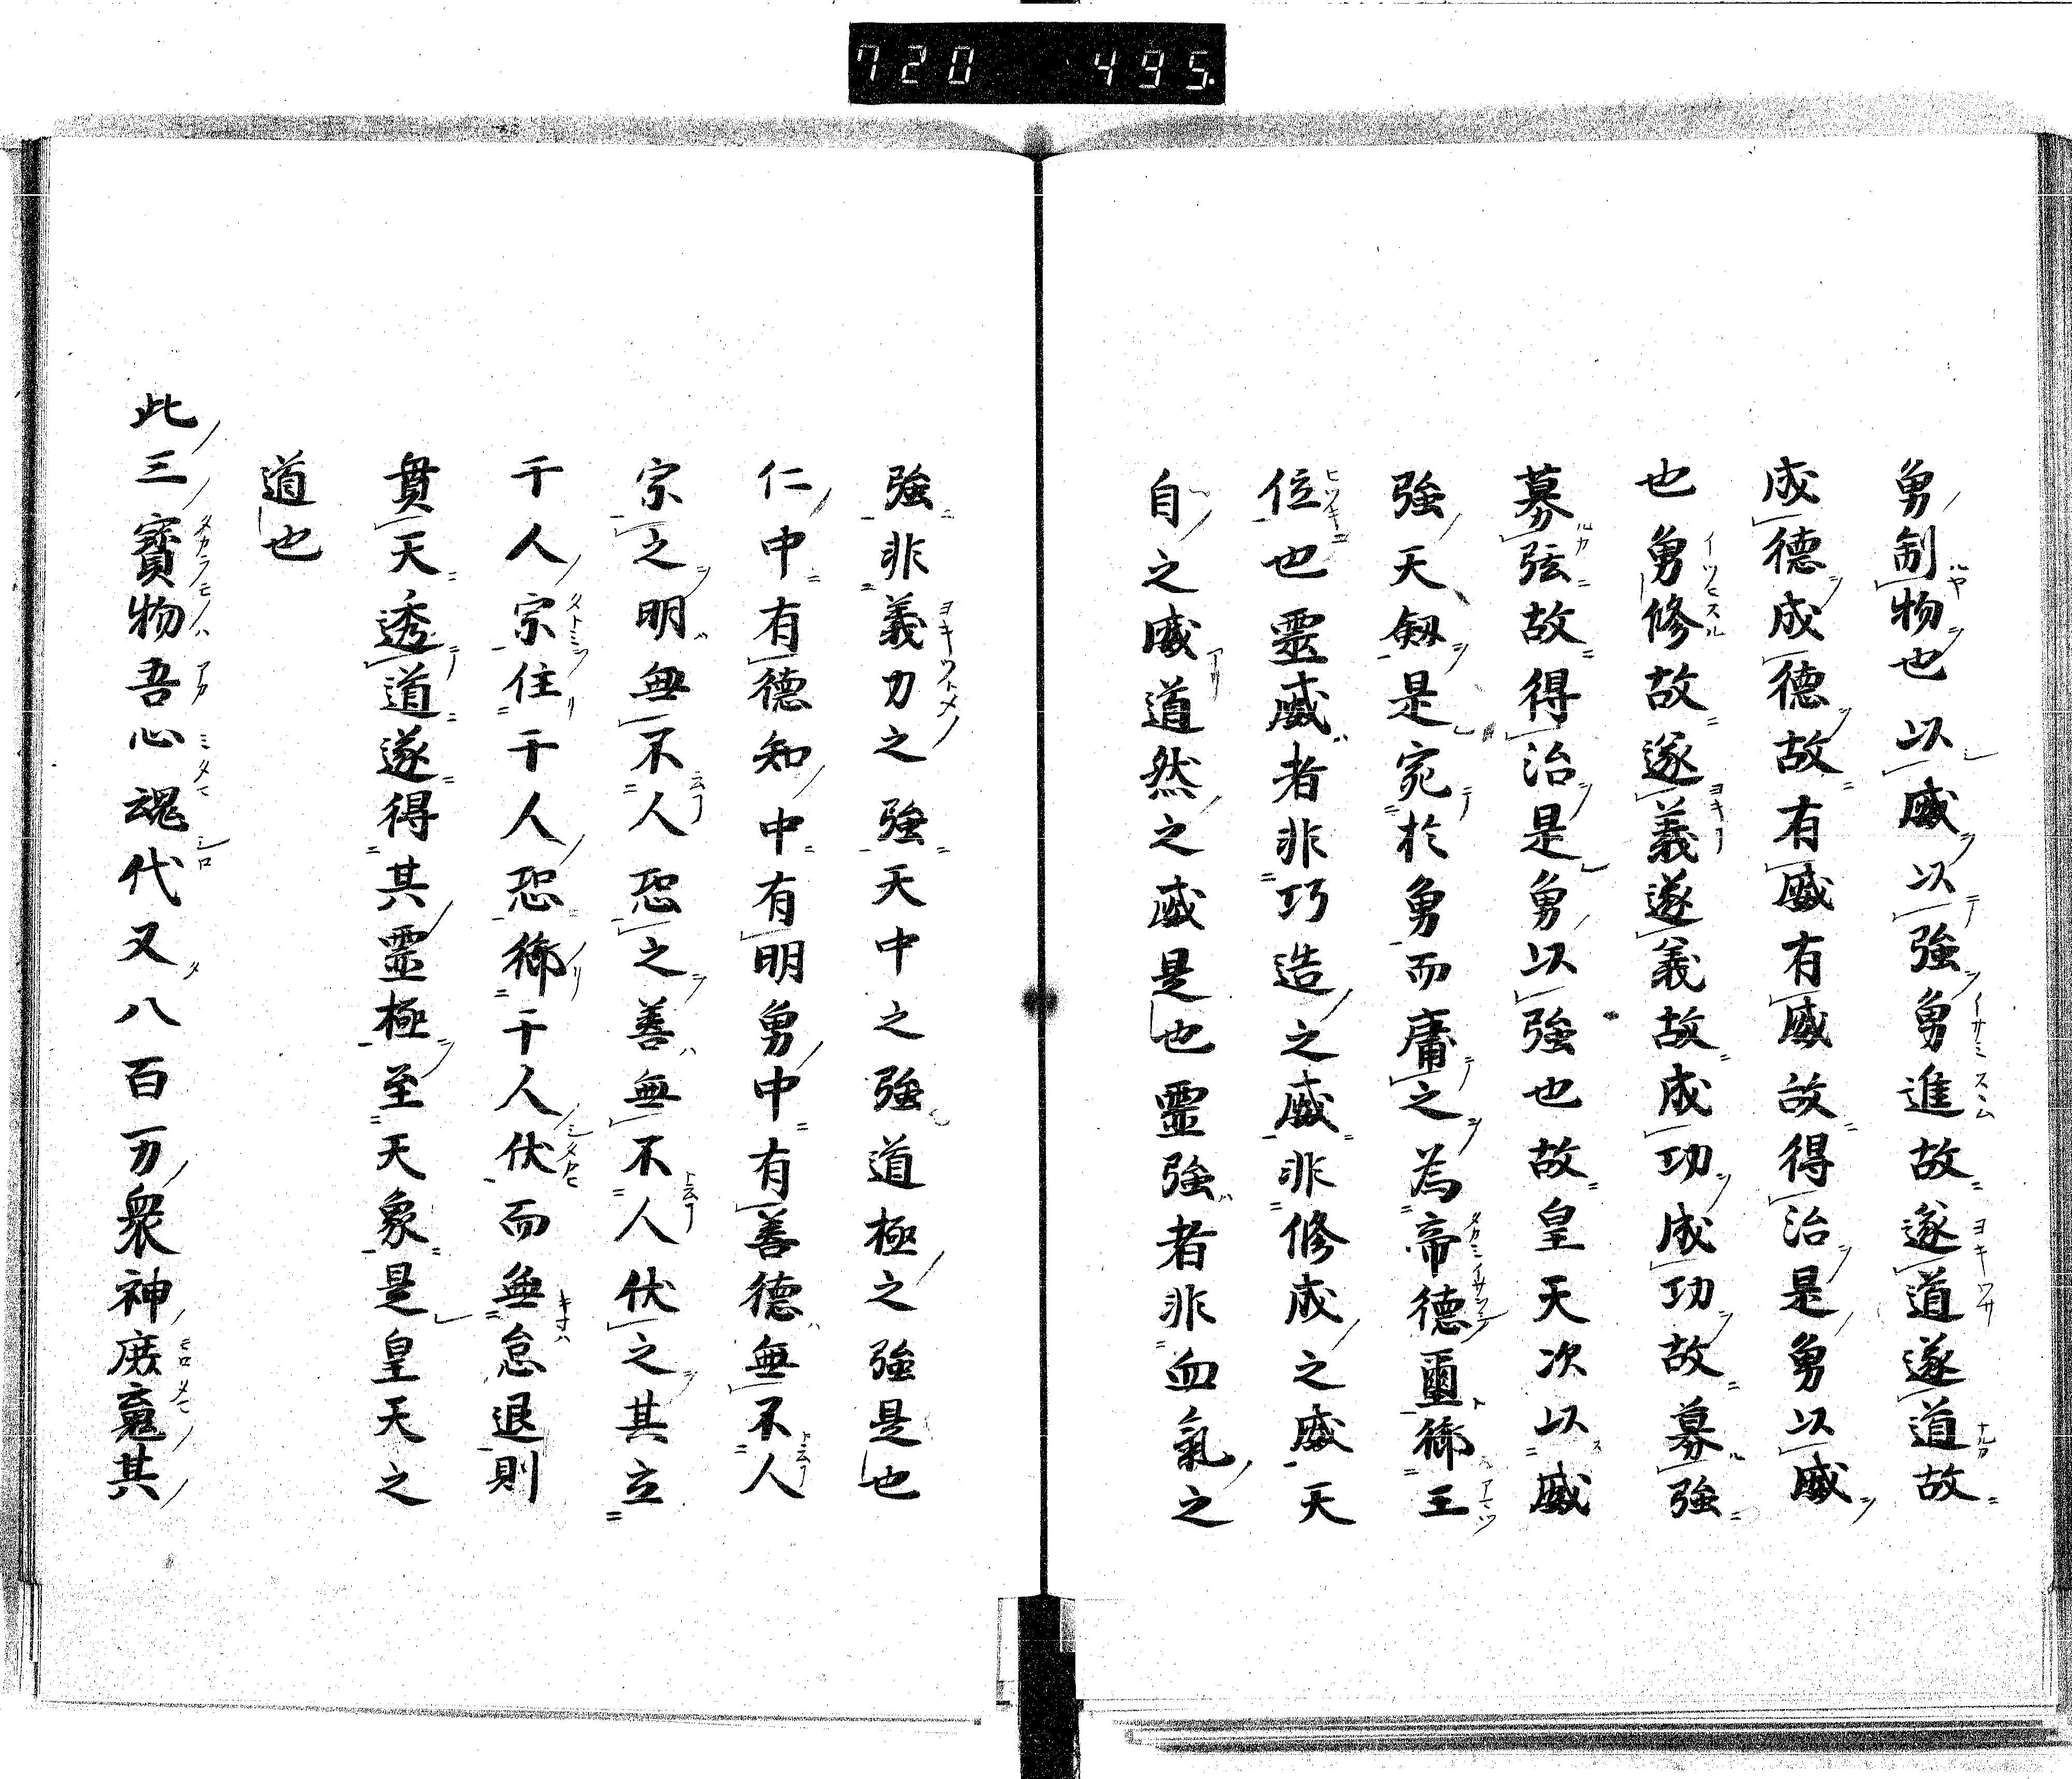 720 495.
勇制物也以威以強勇進故遂道遂道故
成德成德故有威有威故得治是勇以威
也勇修故遂義遂義故成功成功故募強
募弦故得治是勇以強也故皇天次以威
強天劔是宛於勇而庸之為帝德璽御王
位也靈威者非巧造之威非修成之威天
自之威道然之威是也靈強者非血氣之
強非義力之強天中之強道極之強是也
仁中有德知中有明勇中有善德無不人
宗之明無不人恐之善無不人伏之其立
千人宗住千人恐御千人伏而無怠退則
貫天透道遂得其靈極至天象是皇天之
道也
此三寶物吾心魂代又八百万衆神庶其